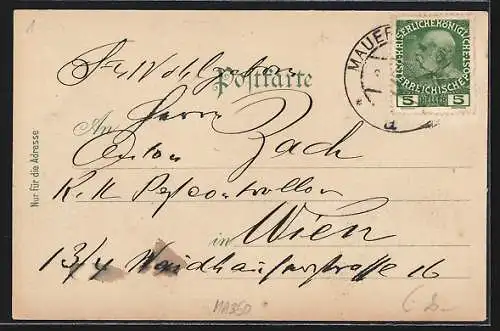 1
Sr. Wohlgeboren
Postkarte
MAUER
KAISERLICHE KÖNIGLICHE
ÖSTERREICHISCHE
5 HELLER 5
An Herrn
Anton Zach
K. K. Postcontrollor
in Wien
13/4 Waidhausenstrasse 16
Nur für die Adresse
MA350